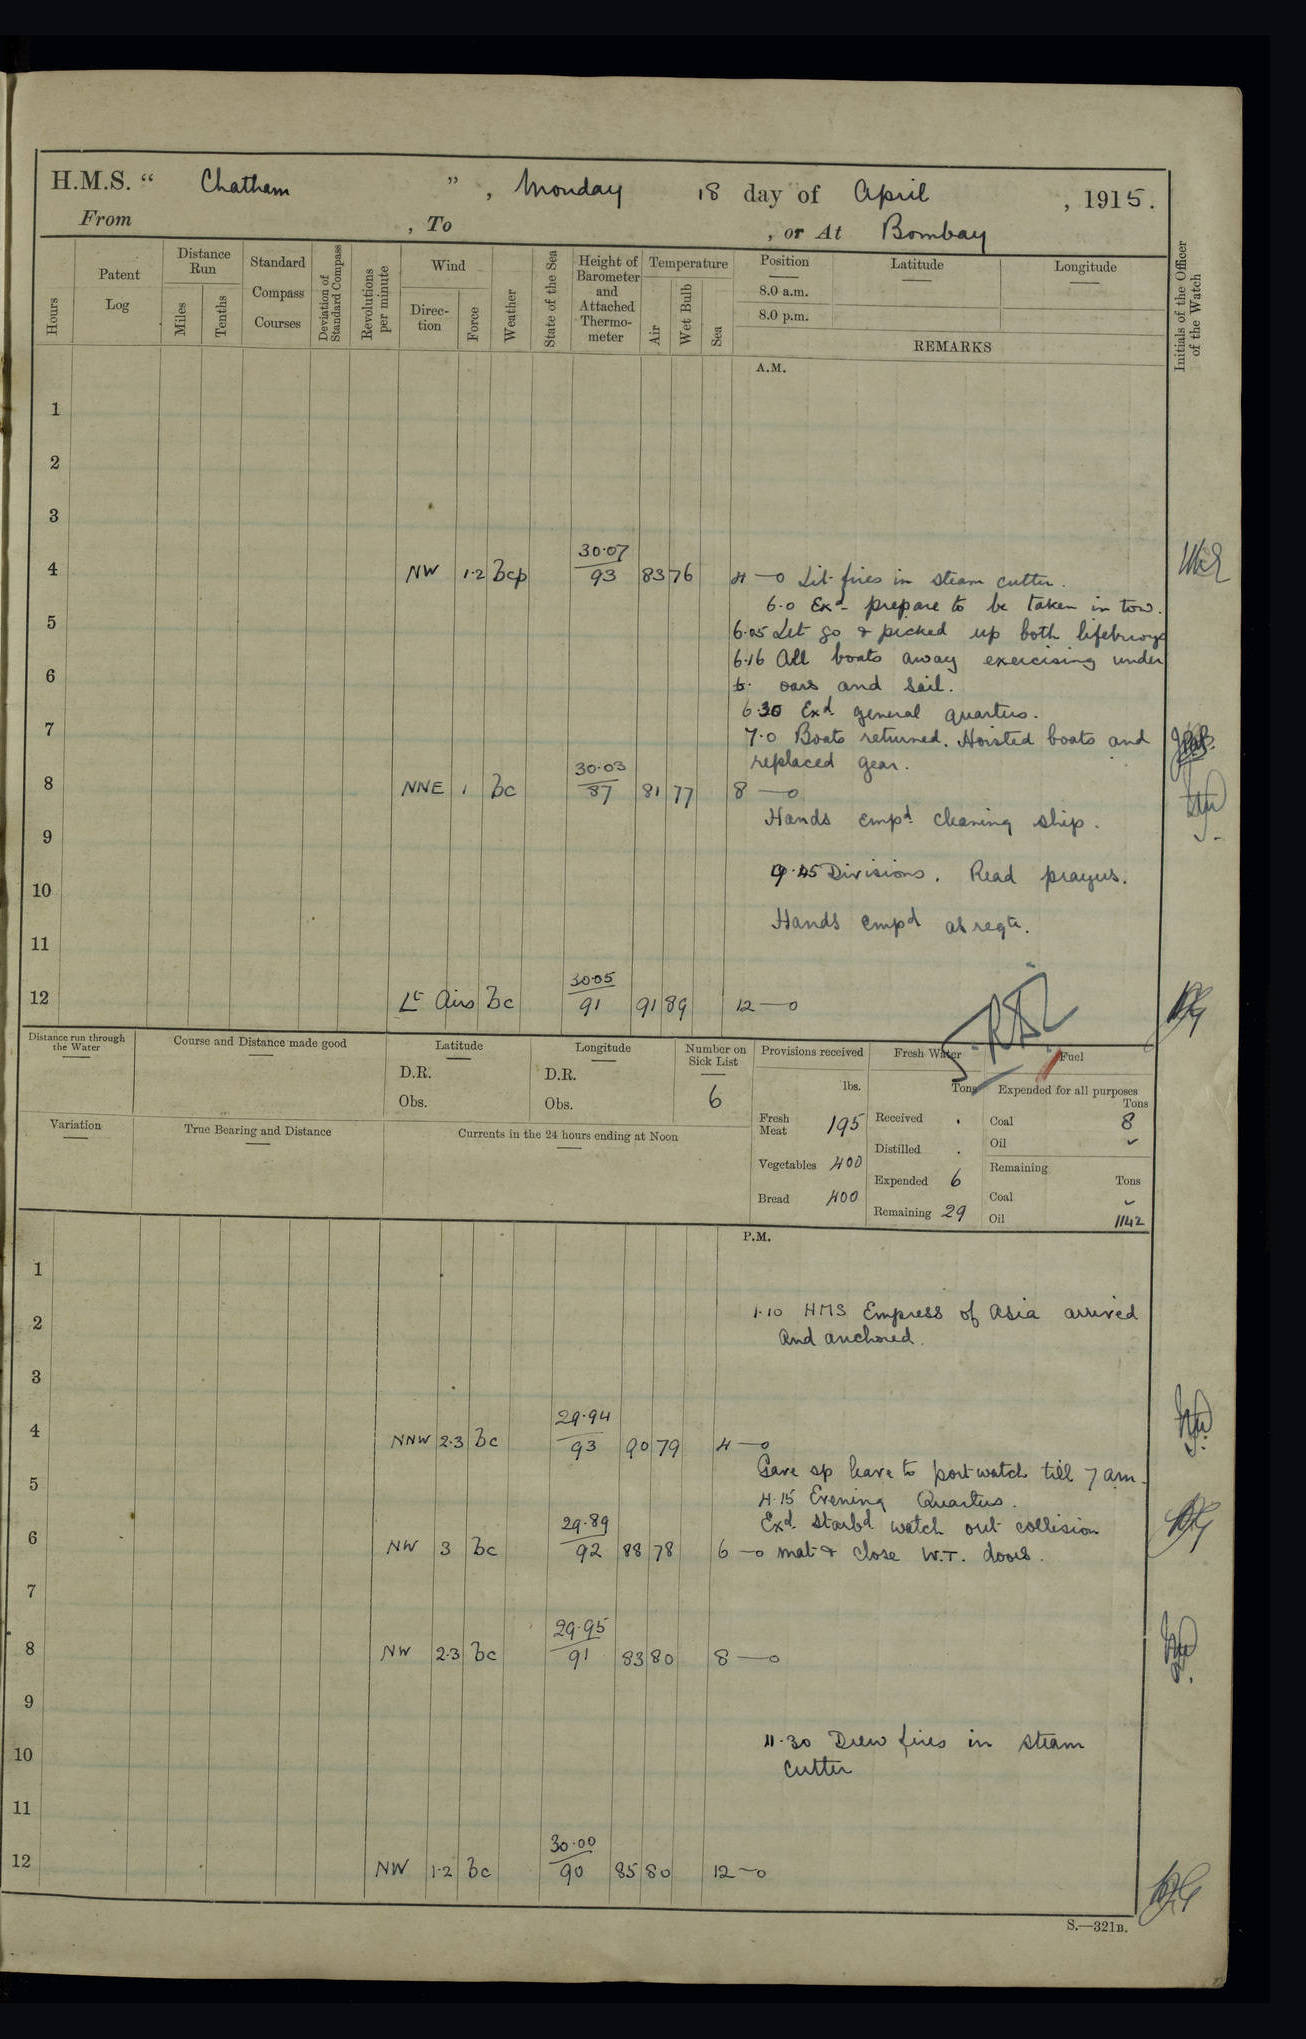 H.M.S. “ Chatham ” , Monday 18 day of April , 1915.
From , To , or At Bombay
Hours
Patent Log
Distance Run
Miles
Tenths
Standard Compass Courses
Deviation of Standard Compass
Revolutions per minute
Wind
Direction
Force
Weather
State of the Sea
Height of Barometer and Attached Thermometer
Temperature
Air
Wet Bulb
Sea
Position
8.0 a.m.
8.0 p.m.
Latitude
Longitude
REMARKS
Initials of the Officer of the Watch
A.M.
1
2
3
4 NW 1·2 bcp 30·07 93 83 76 4 —o Lit fires in steam cutter.
6.0 Exd prepare to be taken in tow.
5
6·05 Let go & picked up both lifebuoys
6·16 All boats away exercising under
6
oars and sail.
6·30 Exd general quarters.
7
7·0 Boats returned. Hoisted boats and
replaced gear.
8 NNE 1 bc 30·03 87 81 77 8 —o
Hands empd cleaning ship.
9
9·45 Divisions. Read prayers.
10
Hands empd as reqte.
11
12 Lt Airs bc 30·05 91 91 89 12 —o
Distance run through the Water
Course and Distance made good
Latitude
D.R.
Obs.
Longitude
D.R.
Obs.
Number on Sick List
6
Variation
True Bearing and Distance
Currents in the 24 hours ending at Noon
Provisions received
lbs.
Fresh Meat 195
Vegetables 400
Bread 400
Fresh Water
Tons
Received .
Distilled .
Expended 6
Remaining 29
Fuel
Expended for all purposes
Tons
Coal 8
Oil
Remaining
Tons
Coal
Oil 1142
P.M.
1
1·10 HMS Empress of Asia arrived
2
and anchored.
3
4 NNW 2·3 bc 29·94 93 90 79 4 —o
Gave sp leave to port watch till 7 am.
5
4·15 Evening Quarters.
Exd Starbd watch out collision
6 NW 3 bc 29·89 92 88 78 6 —o mat & close W.T. doors.
7
8 NW 2·3 bc 29·95 91 83 80 8 —o
9
10
11·30 Drew fires in steam
cutter
11
12 NW 1·2 bc 30·00 90 85 80 12 —o
S.—321B.